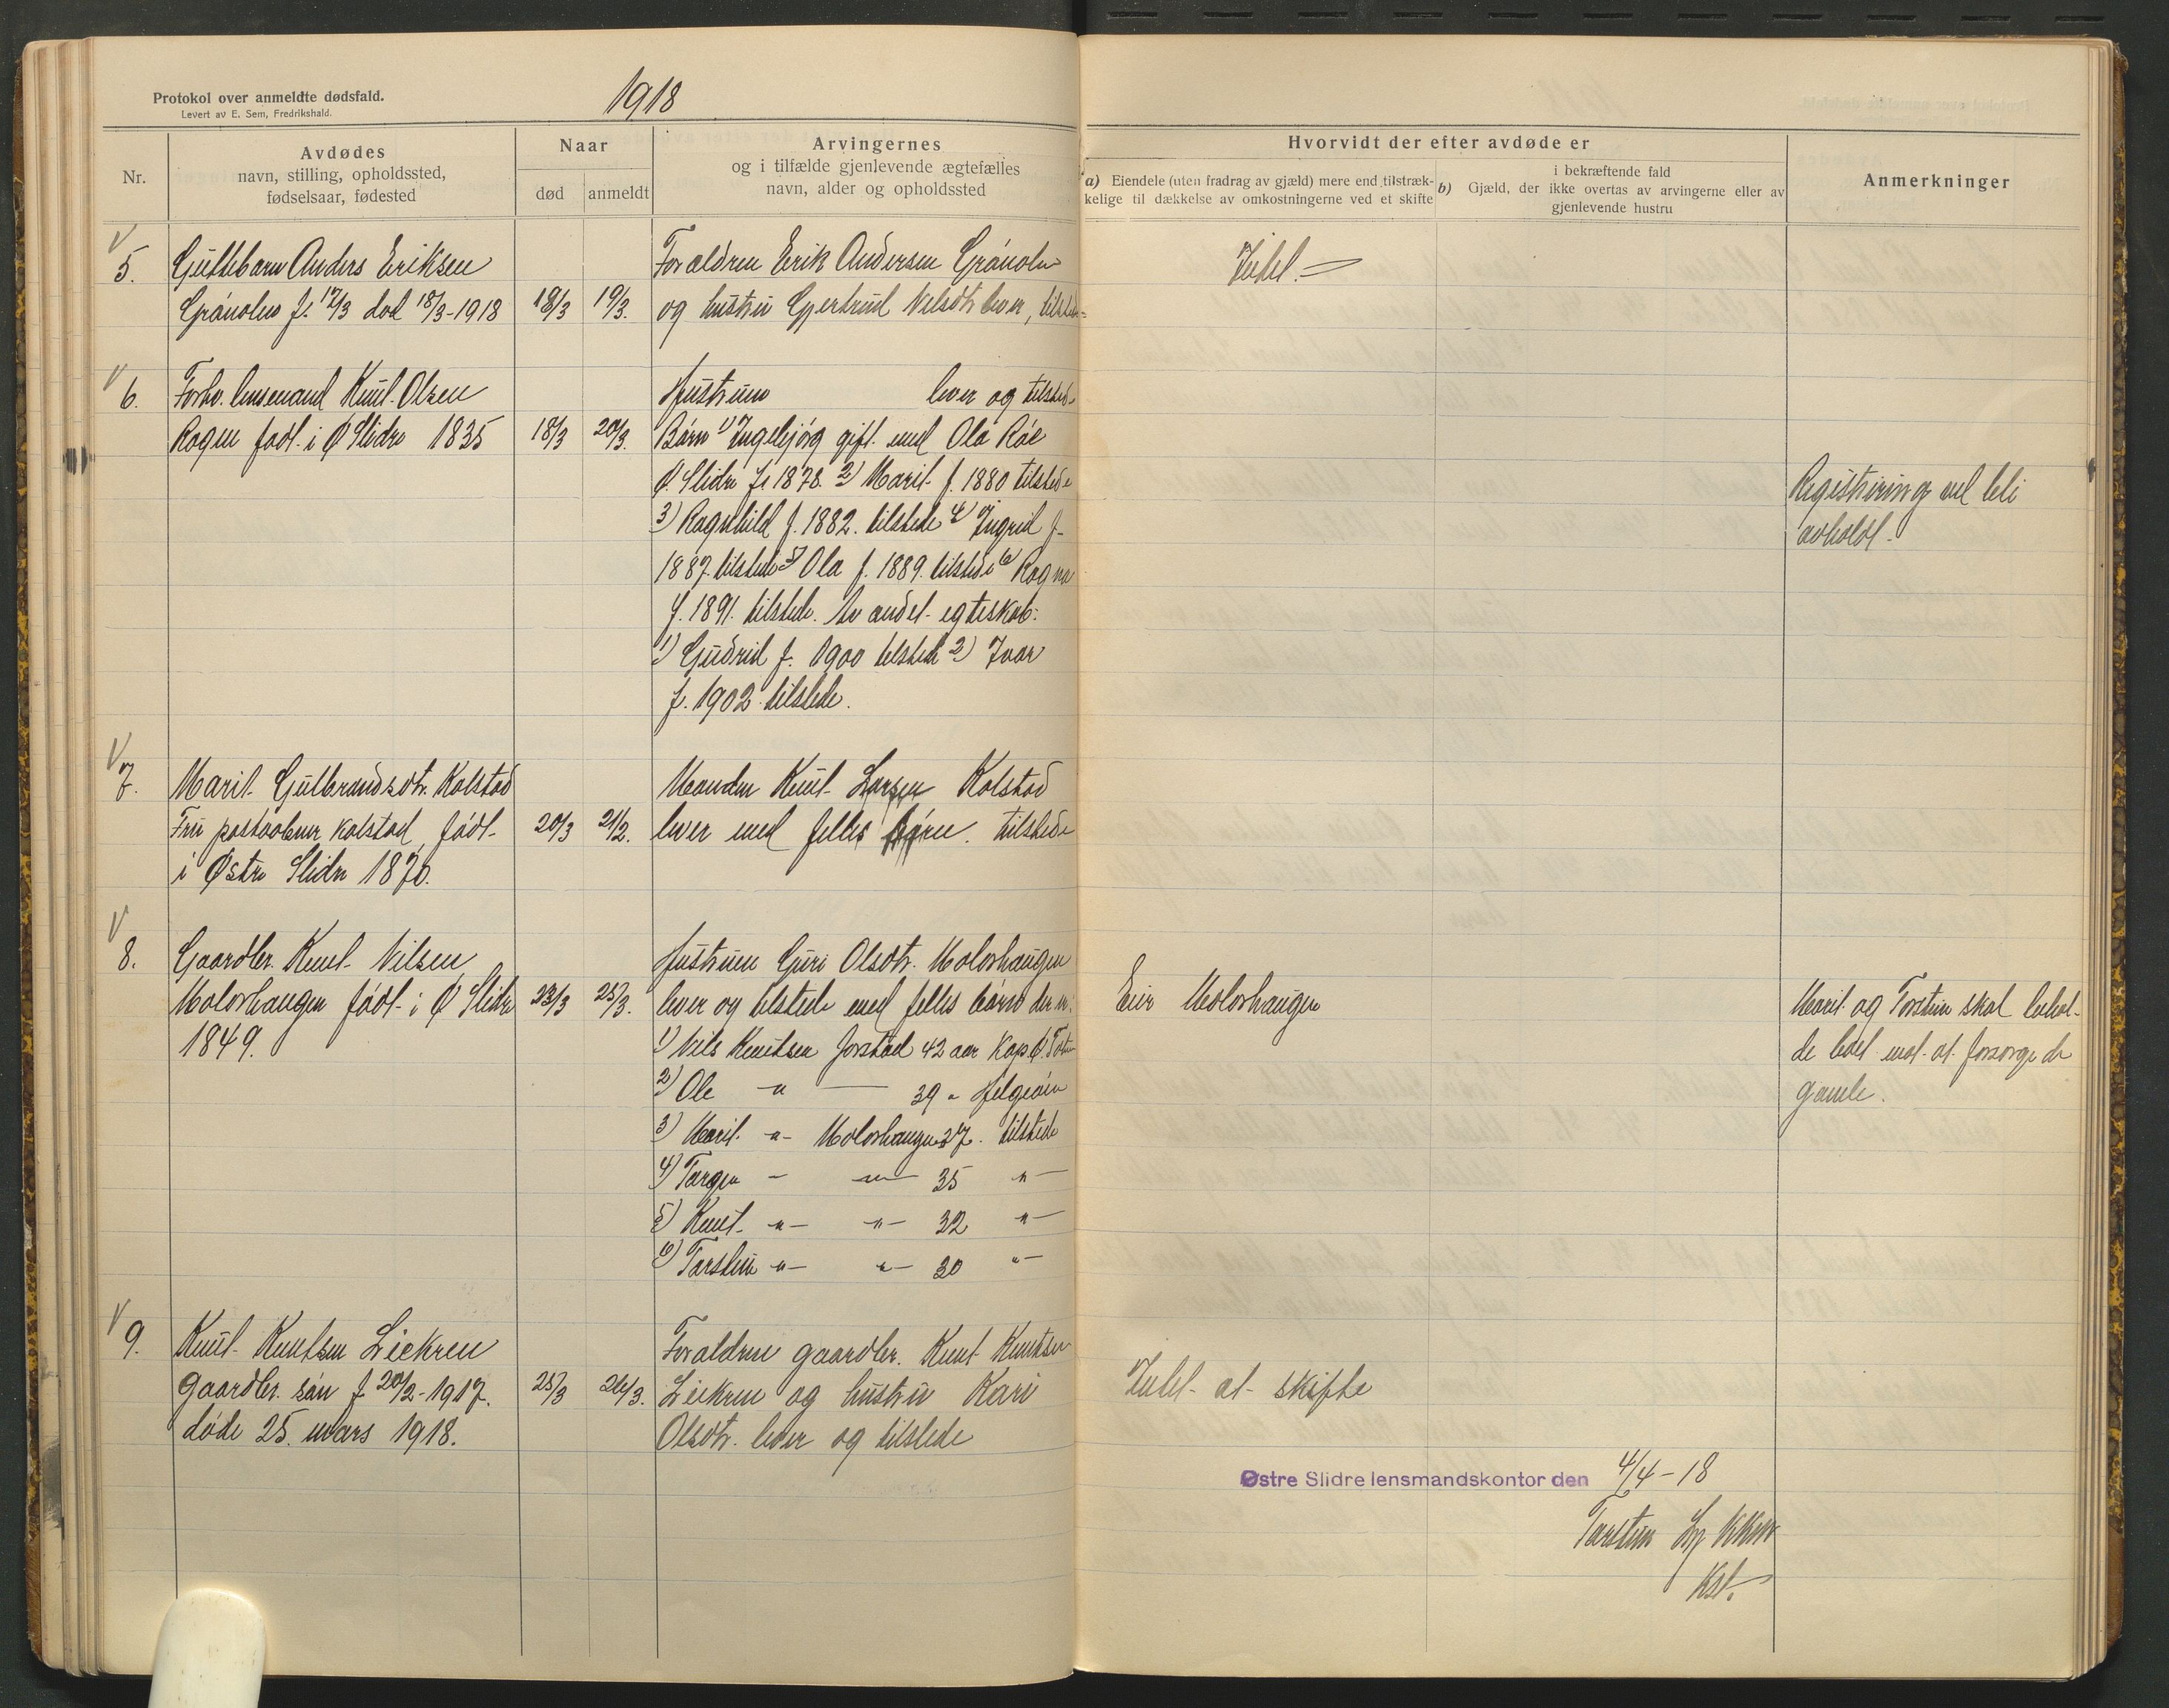 Protokol over anmeldte dødsfald.
Levert av E. Sem, Fredrikshald.
1918
Nr.
Avdødes
navn, stilling, opholdssted,
fødselsaar, fødested
Naar
død
anmeldt
Arvingernes
og i tilfælde gjenlevende ægtefælles
navn, alder og opholdssted
Hvorvidt der efter avdøde er
a) Eiendele (uten fradrag av gjæld) mere end tilstræk-
kelige til dækkelse av omkostningerne ved et skifte
b) i bekræftende fald
Gjæld, der ikke overtas av arvingerne eller av
gjenlevende hustru
Anmerkninger
5. Guttebarn Anders Eriksen
Forældren Erik Andersen
Intet.
f. 17/3 død 18/3-1918
18/3
19/3.
og hustru Gjertrud Nelsdtr. lever,
6. Forhv. lensmand Knut Olsen
Hustruen lever og tilsted.
Rogne født i Ø Slidre 1835
18/3
20/3.
Børn 1) Ingebjørg gift med Ola Røe
Ø. Slidre f. 1878. 2) Marit f. 1880 tilstede
3) Ragnhild f. 1882. tilstede 4) Ingrid f.
1887. tilstede 5) Ola f. 1889. tilstede 6) Ragna
f. 1891. tilstede. Av andet egteskab:
1) Gudrid f. 1900 tilstede 2) Ivar
f. 1902 tilstede.
Registrering vel bli
avholdt.
7. Marit Gulbrandsdtr. Kolstad
Manden Knut Larsen Kolstad
Fru postaabner Kolstad, født
20/3
21/2.
lever med felles børn. tilstede
i Østre Slidre 1870.
8. Gaardbr. Knut Nilsen
Hustruen Guri Olsdtr. Molovhaugen
Molovhaugen født i Ø Slidre
23/3
25/3.
lever og tilstede med felles børn
1849.
1) Nils Knutsen Jorstad 42 aar Kap Ø. Toten
2) Ole -"- 39 " Helgeøen
3) Marit -"- Molovhaugen 37. tilstede
4) - -"- 35 "-
5) Knut -"- -"- 32 "-
6) Torstein -"- -"- 30 "-
Eier Molovhaugen
Marit og Torstein skal behol-
de boet mot at forsørge de
gamle.
9. Knut Knutsen Liekren
Forældrene gaardbr. Knut Knutsen
gaardbr. søn f. 20/2-1917.
25/3
26/3.
Liekren og hustru Kari
døde 25. mars 1918.
Olsdtr. lever og tilstede
Intet at skifte
Østre Slidre lensmandskontor den 4/4-18
Torstein
Kst.